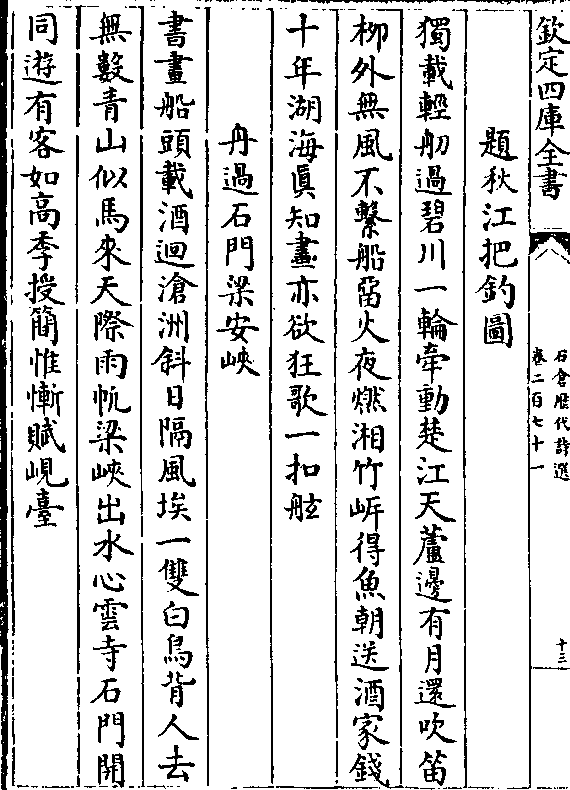 欽定四庫全書
石倉歷代詩選
卷二百七十一
十三
題秋江把釣圖
獨載輕舠過碧川一輪牽動楚江天蘆邊有月還吹笛
柳外無風不繫船宿火夜燃湘竹㟁得魚朝送酒家錢
十年湖海眞知畫亦欲狂歌一扣舷
舟過石門梁安峽
書畫船頭載酒迴滄洲斜日隔風埃一雙白鳥背人去
無數青山似馬來天際雨帆梁峽出水心雲寺石門開
同遊有客如高李授簡惟慚賦峴臺